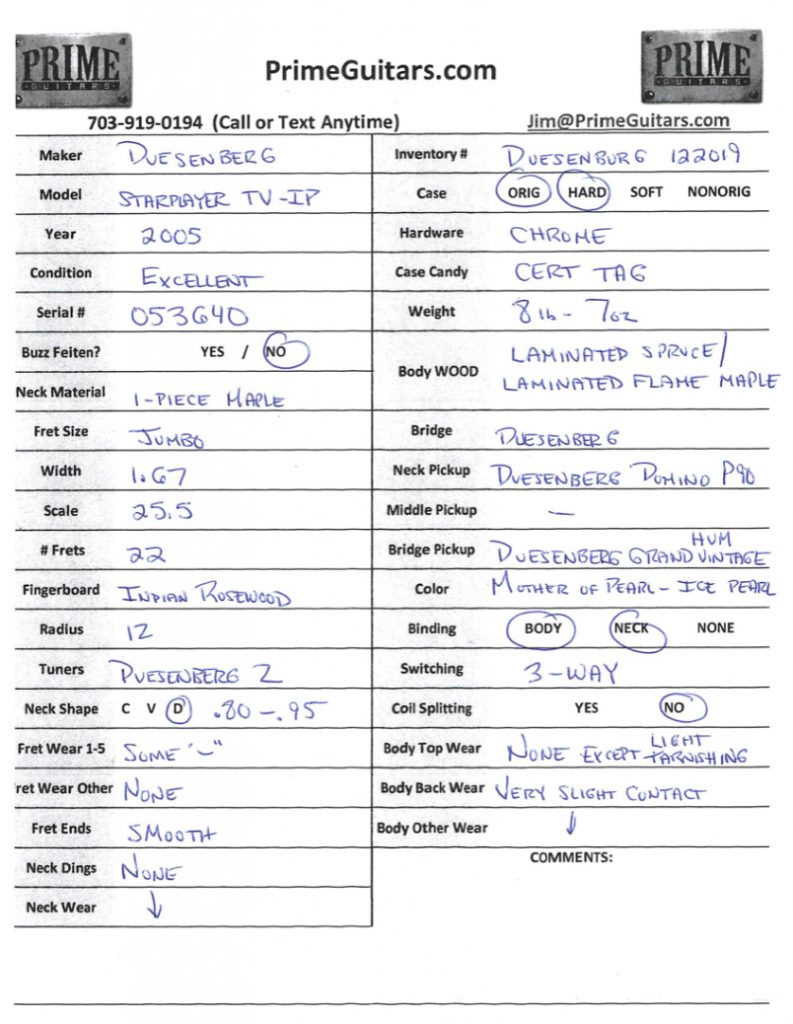 PRIME
GUITARS
PrimeGuitars.com
PRIME
GUITARS
703-919-0194 (Call or Text Anytime)
Jim@PrimeGuitars.com
Maker DUESENBERG
Model STARPLAYER TV-IP
Year 2005
Condition EXCELLENT
Serial # 053640
Buzz Feiten? YES / NO
Neck Material 1-PIECE MAPLE
Fret Size JUMBO
Width 1.67
Scale 25.5
# Frets 22
Fingerboard INDIAN ROSEWOOD
Radius 12
Tuners DUESENBERG Z
Neck Shape C V D .80-.95
Fret Wear 1-5 SOME "~"
ret Wear Other NONE
Fret Ends SMOOTH
Neck Dings NONE
Neck Wear ↓
Inventory # DUESENBURG 122019
Case ORIG HARD SOFT NONORIG
Hardware CHROME
Case Candy CERT TAG
Weight 8 lb - 7oz
Body WOOD LAMINATED SPRUCE/
LAMINATED FLAME MAPLE
Bridge DUESENBERG
Neck Pickup DUESENBERG DOMINO P90
Middle Pickup —
HUM
Bridge Pickup DUESENBERG GRAND VINTAGE
Color MOTHER OF PEARL - ICE PEARL
Binding BODY NECK NONE
Switching 3-WAY
Coil Splitting YES NO
LIGHT
Body Top Wear NONE EXCEPT TARNISHING
Body Back Wear VERY SLIGHT CONTACT
Body Other Wear ↓
COMMENTS: